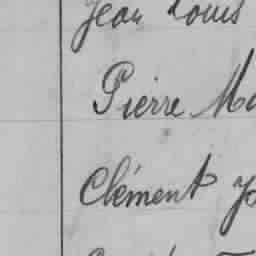 Jean Louis
Pierre Ma
Clément